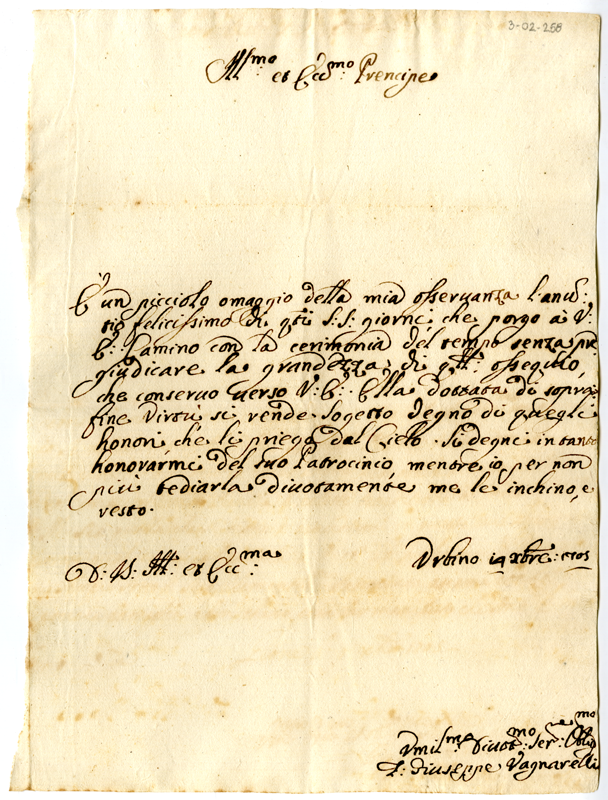 3-02-258
Ill:mo et Ecc:mo Prencipe
È un picciolo omaggio della mia osseruanza l'anti:
tio felicissimo di q:ti S:S: giorni, che porgo à V:
E: Camino con la cerimonia del tempo senza pre
giudicare la grandezza di q:ll' ossequio,
che conseruo uerso V: E: Ella dottata di sopra
fine Virtù si rende sogetto degno di quegli
honori che li priego dal Cielo. Si degni in tanto
honorarmi del suo Patrocinio, mentre io per non
più tediarla diuotamente me le inchino, e
resto.
D: V: Ill: et Ecc:ma
Urbino 14 Xbre:
Umil:ma Diuot:mo Ser:re Obl:mo
Giuseppe Vagnarelli